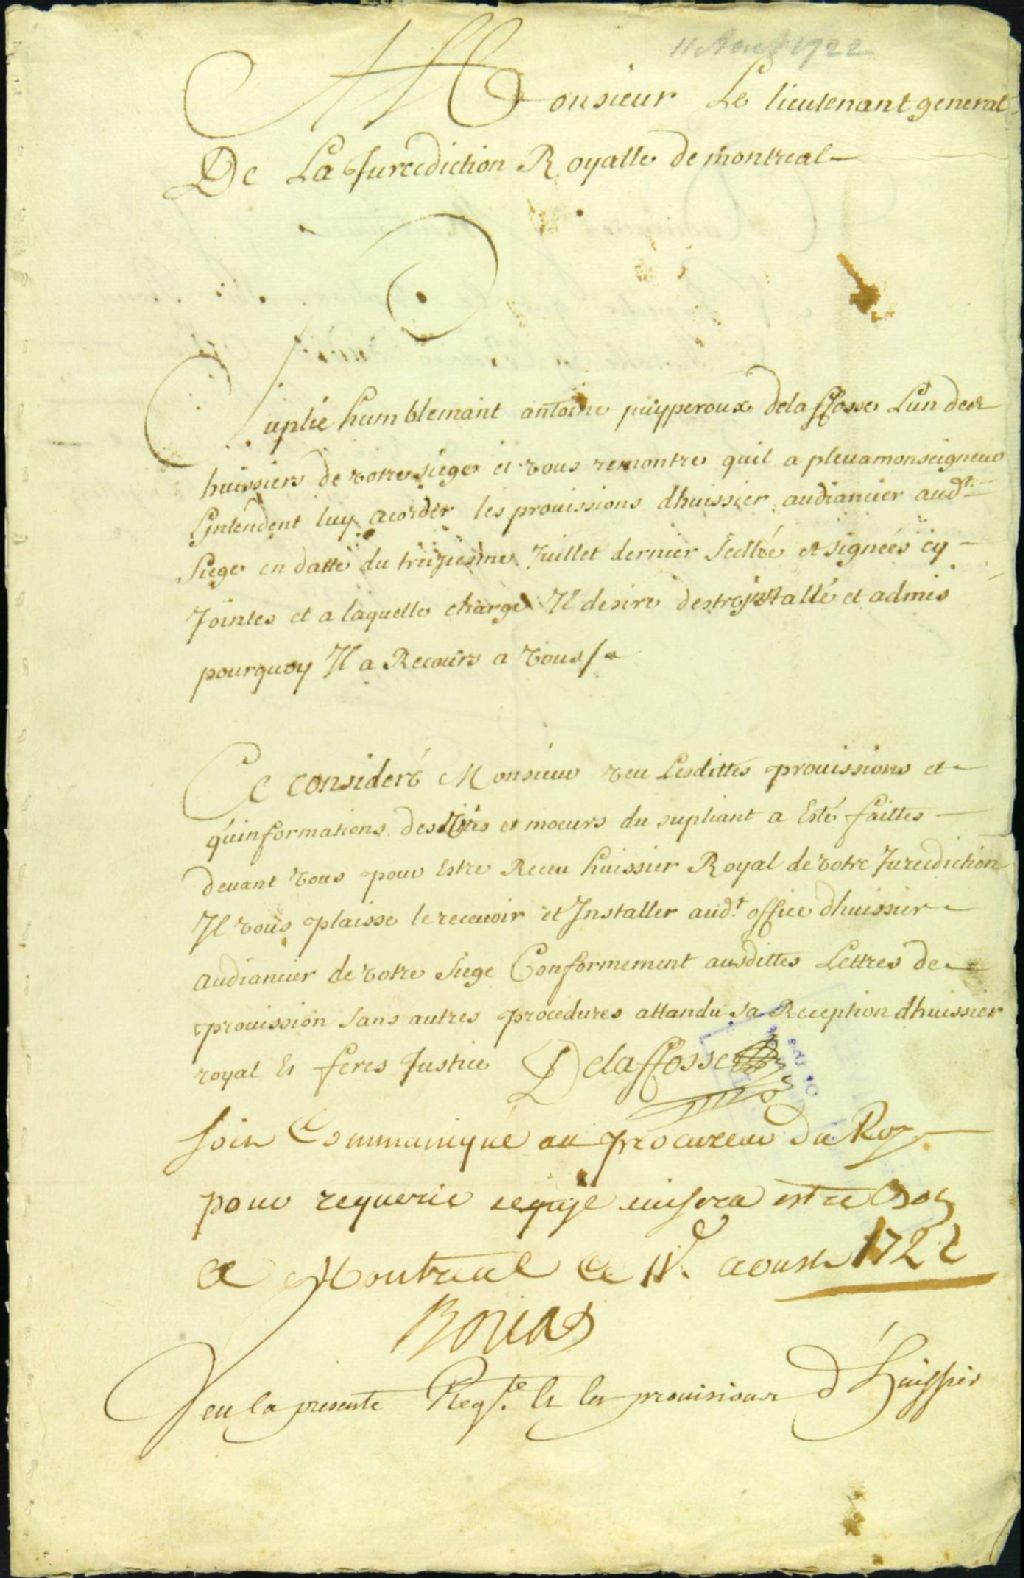 11 Aout 1722
A Monsieur Le lieutenant general
De La Jurcediction Royalle de montreal
Suplie humblemant antoine puypéroux delaffosse Lun des
huissiers de votre siege et vous remontre quil a pleu a monseigneur
Lintendent luy acorder les prouissions dhuissier audiancier audt
Siege en datte du treiziesme Juillet dernier scellée et signées cy
Jointes et a laquelle charge Il desire destre installé et admis
pourquoy Il a Recours a vous /.
Ce consideré Monsieur veu Lesdittes prouissions et
quinformations des vies et moeurs du supliant a Esté faittes
devant vous pour Estre Receu huissier Royal de votre Jurcediction
Il vous plaisse le recevoir et Installer audt office dhuissier
audiancier de votre siege Conformement ausdittes Lettres de
prouission sans autres procedures attandu sa Reception dhuissier
royal Et feres Justice Delaffosse
Soit Communiqué au procureur du Roy
pour requerir ce quil auisera estre bon
a Montreal ce 11e. aoust 1722
Veu la presente Reqte. et les prouisions d'huissier